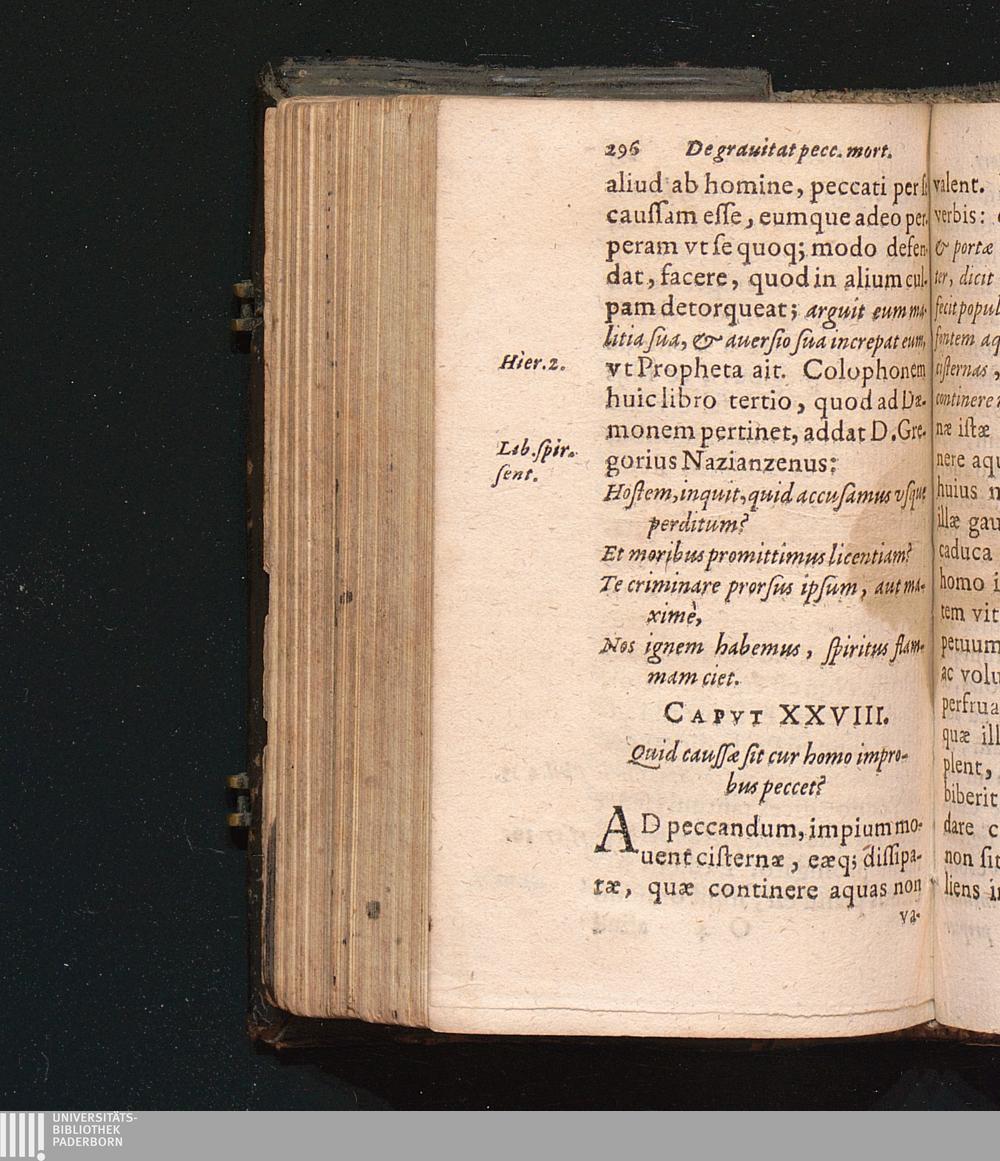 296 De grauitat pecc. mort.
aliud ab homine, peccati per se
caussam esse, eumque adeo per-
peram vt se quoq; modo defen-
dat, facere, quod in alium cul-
pam detorqueat; arguit eum ma-
litia sua, & auersio sua increpat eum,
Hier. 2.
vt Propheta ait. Colophonem
huic libro tertio, quod ad Dæ-
monem pertinet, addat D. Gre-
Lib. spir.
sent.
gorius Nazianzenus:
Hostem, inquit, quid accusamus vsque
perditum?
Et moribus promittimus licentiam?
Te criminare prorsus ipsum, aut ma-
ximè,
Nos ignem habemus, spiritus flam-
mam ciet.
CAPVT XXVIII.
Quid caussæ sit cur homo impro-
bus peccet?
AD peccandum, impium mo-
uent cisternæ, eæq; dissipa-
tæ, quæ continere aquas non
va-
valent.
verbis:
& portæ
ter, dicit
fecit popul
fontem aq
cisternas,
continere
næ istæ
nere aqu
huius
illæ gau
caduca
homo i
tem vit
petuum
ac volu
perfrua
quæ ill
plent,
biberit
dare c
non sit
liens in
UNIVERSITÄTS-
BIBLIOTHEK
PADERBORN